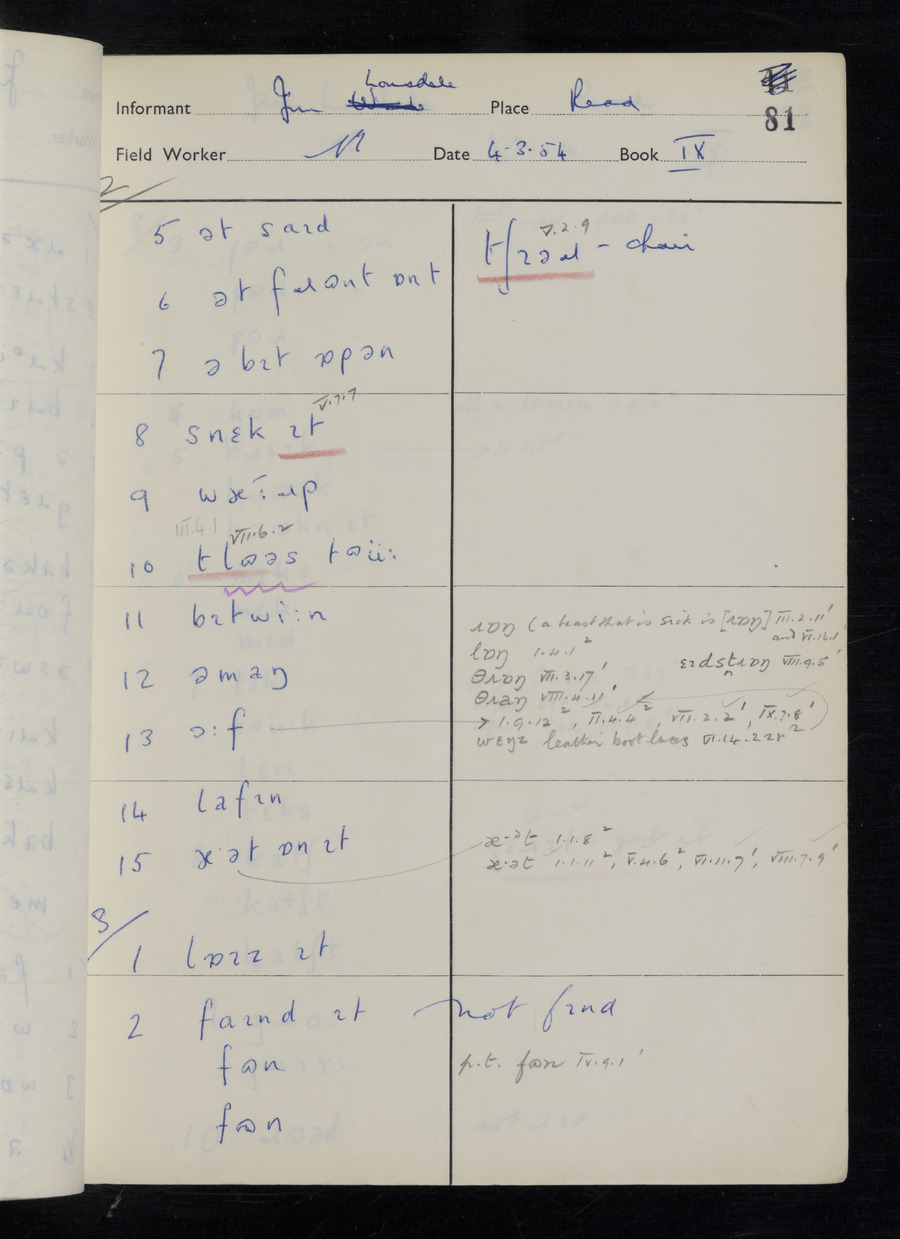 Lonsdale
Informant Jim Place Read
81
Field Worker N Date 4-3-54 Book IX
2/
5 ət saɪd
6 ət fɹɒnt ɒnt
7 ə bɪt ɒpən
8 snɛk ɪt V.7.7
9
III.4.1 VII.6.2
10 tlɒəs tɒü:
11 bɪtwi:n
12 əmaŋ
13 ɔ:f
14 lafɪn
15 æ·ət ɒn ɪt
3/
1 lɒɪz ɪt
2 faɪnd ɪt not fɪnd
fɒn
fɒn
V.2.9
tʃɪəɹ - chair
ɹɒŋ (a beast that is sick is [ɹɒŋ] III.2.11' and VI.13.1'
lɒŋ 1.4.1²
ɛɪdstɹɒŋ VIII.9.5'
θɹɒŋ VII.3.17'
θɹaŋ VIII.4.11'
> 1.9.12², II.4.4², VII.2.2', IX.7.8'
leather boot laces VI.14.22r²
æ·ət 1.1.8²
æ·ət 1.1.11², V.4.6², VI.11.7', VIII.7.9'
p.t. fɒn IV.9.1'